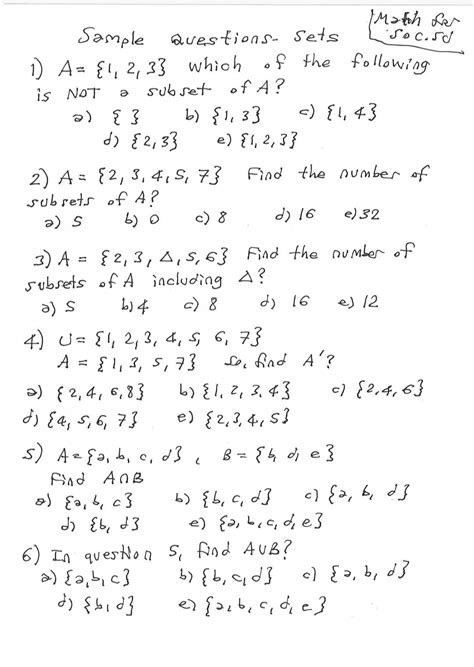 Sample Questions- Sets
Math for
Soc.Sci
1) A = {1, 2, 3} which of the following
is NOT a subset of A?
a) { } b) {1, 3} c) {1, 4}
d) {2, 3} e) {1, 2, 3}
2) A = {2, 3, 4, 5, 7} Find the number of
subsets of A?
a) 5 b) 0 c) 8 d) 16 e) 32
3) A = {2, 3, Δ, 5, 6} Find the number of
subsets of A including Δ?
a) 5 b) 4 c) 8 d) 16 e) 12
4) U = {1, 2, 3, 4, 5, 6, 7}
A = {1, 3, 5, 7} So, find A'?
a) {2, 4, 6, 8} b) {1, 2, 3, 4} c) {2, 4, 6}
d) {4, 5, 6, 7} e) {2, 3, 4, 5}
5) A = {a, b, c, d}, B = {b, d, e}
Find A∩B
a) {a, b, c} b) {b, c, d} c) {a, b, d}
d) {b, d} e) {a, b, c, d, e}
6) In question 5, find A∪B?
a) {a, b, c} b) {b, c, d} c) {a, b, d}
d) {b, d} e) {a, b, c, d, e}